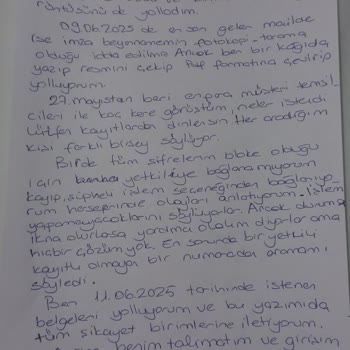 rüntüsünü de yolladım.
09.06.2025 de en son gelen mailde
ise imza beyannamemin fotokopi-tarama
olduğu iddia edilmiş Ancak ben bir kağıda
yazıp resmini çekip Pdf formatına çevirip
yolluyorum.
27 mayıstan beri enpara müşteri temsil-
cileri ile kaç kere görüştüm, neler istendi
Lütfen kayıtlardan dinlensin. Her aradığım
kişi farklı birşey söylüyor.
Birde tüm şifrelerim bloke olduğu
için yetkiliye bağlanamıyorum
kayıp, şüpheli işlem seçeneğinden bağlanıyo-
rum hesaplarımda olayları anlatıyorum. İşlem
yapamayacaklarını söylüyorlar. Ancak duruma
ikna olurlarsa yardımcı olalım diyorlar ama
hiçbir çözüm yok. En sonunda bir yetkili
kayıtlı olmayan bir numaradan aramamı
söyledi.
Ben 11.06.2025 tarihinde istenen
belgeleri yolluyorum ve bu yazımıda
tüm şikayet birimlerine iletiyorum.
benim talimatım ve girişim